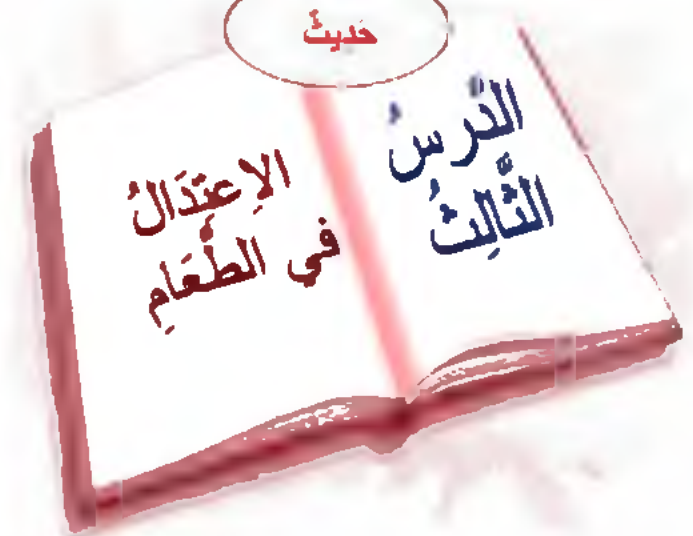 حَديثٌ
الدَّرسُ
الثَّالِثُ
الاِعتِدَالُ
في الطَّعَامِ